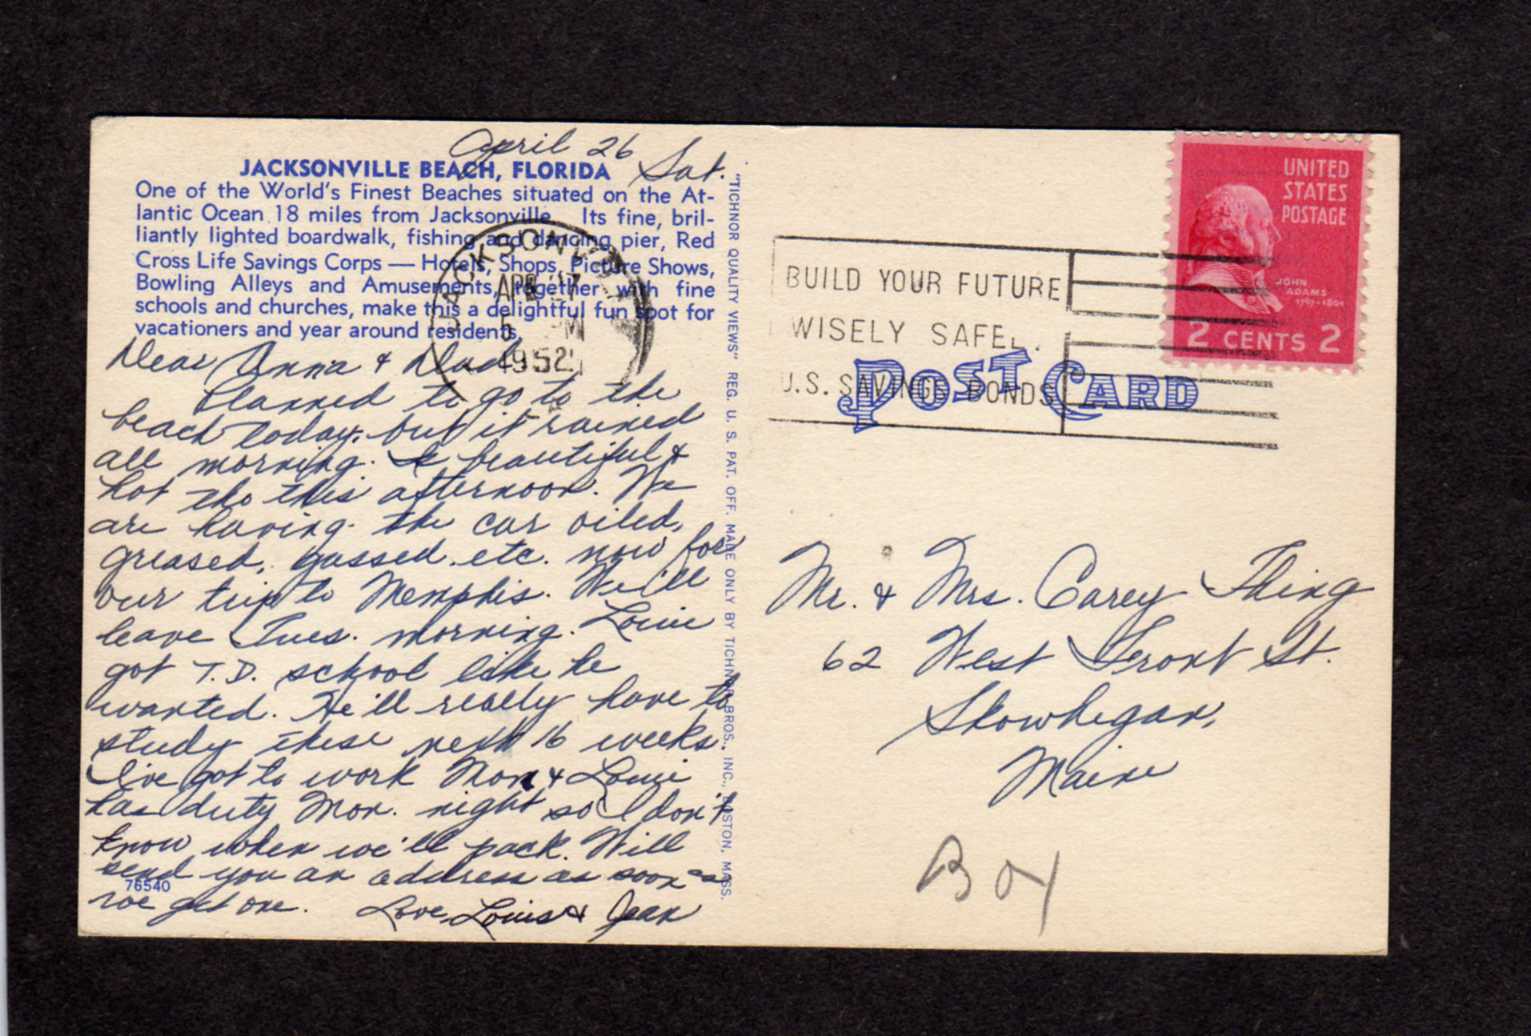 April 26
Sat.
JACKSONVILLE BEACH, FLORIDA
One of the World's Finest Beaches situated on the At-
lantic Ocean 18 miles from Jacksonville. Its fine, bril-
liantly lighted boardwalk, fishing and dancing pier, Red
Cross Life Savings Corps — Hotels, Shops, Picture Shows,
Bowling Alleys and Amusements, together with fine
schools and churches, make this a delightful fun spot for
vacationers and year around residents.
JACKSONVILLE
APR 27
5 PM
1952
Dear Anna & Dad,
Planned to go to the
beach today, but it rained
all morning. Is beautiful &
hot tho this afternoon. We
are having the car oiled,
greased, gassed etc. now for
our trip to Memphis. We'll
leave Tues. morning. Louie
got T.D. school like he
wanted. He'll really have to
study these next 16 weeks.
I've got to work Mon & Louie
has duty Mon. night so I don't
know when we'll pack. Will
send you an address as soon as
we get one. Love, Louis & Jean
76540
"TICHNOR QUALITY VIEWS" REG. U. S. PAT. OFF. MADE ONLY BY TICHNOR BROS., INC., BOSTON, MASS.
UNITED
STATES
POSTAGE
JOHN
ADAMS
1797-1801
2 CENTS 2
BUILD YOUR FUTURE
WISELY SAFELY
U.S. SAVINGS BONDS
POST CARD
Mr. & Mrs. Carey Thing
62 West Front St.
Skowhegan,
Maine